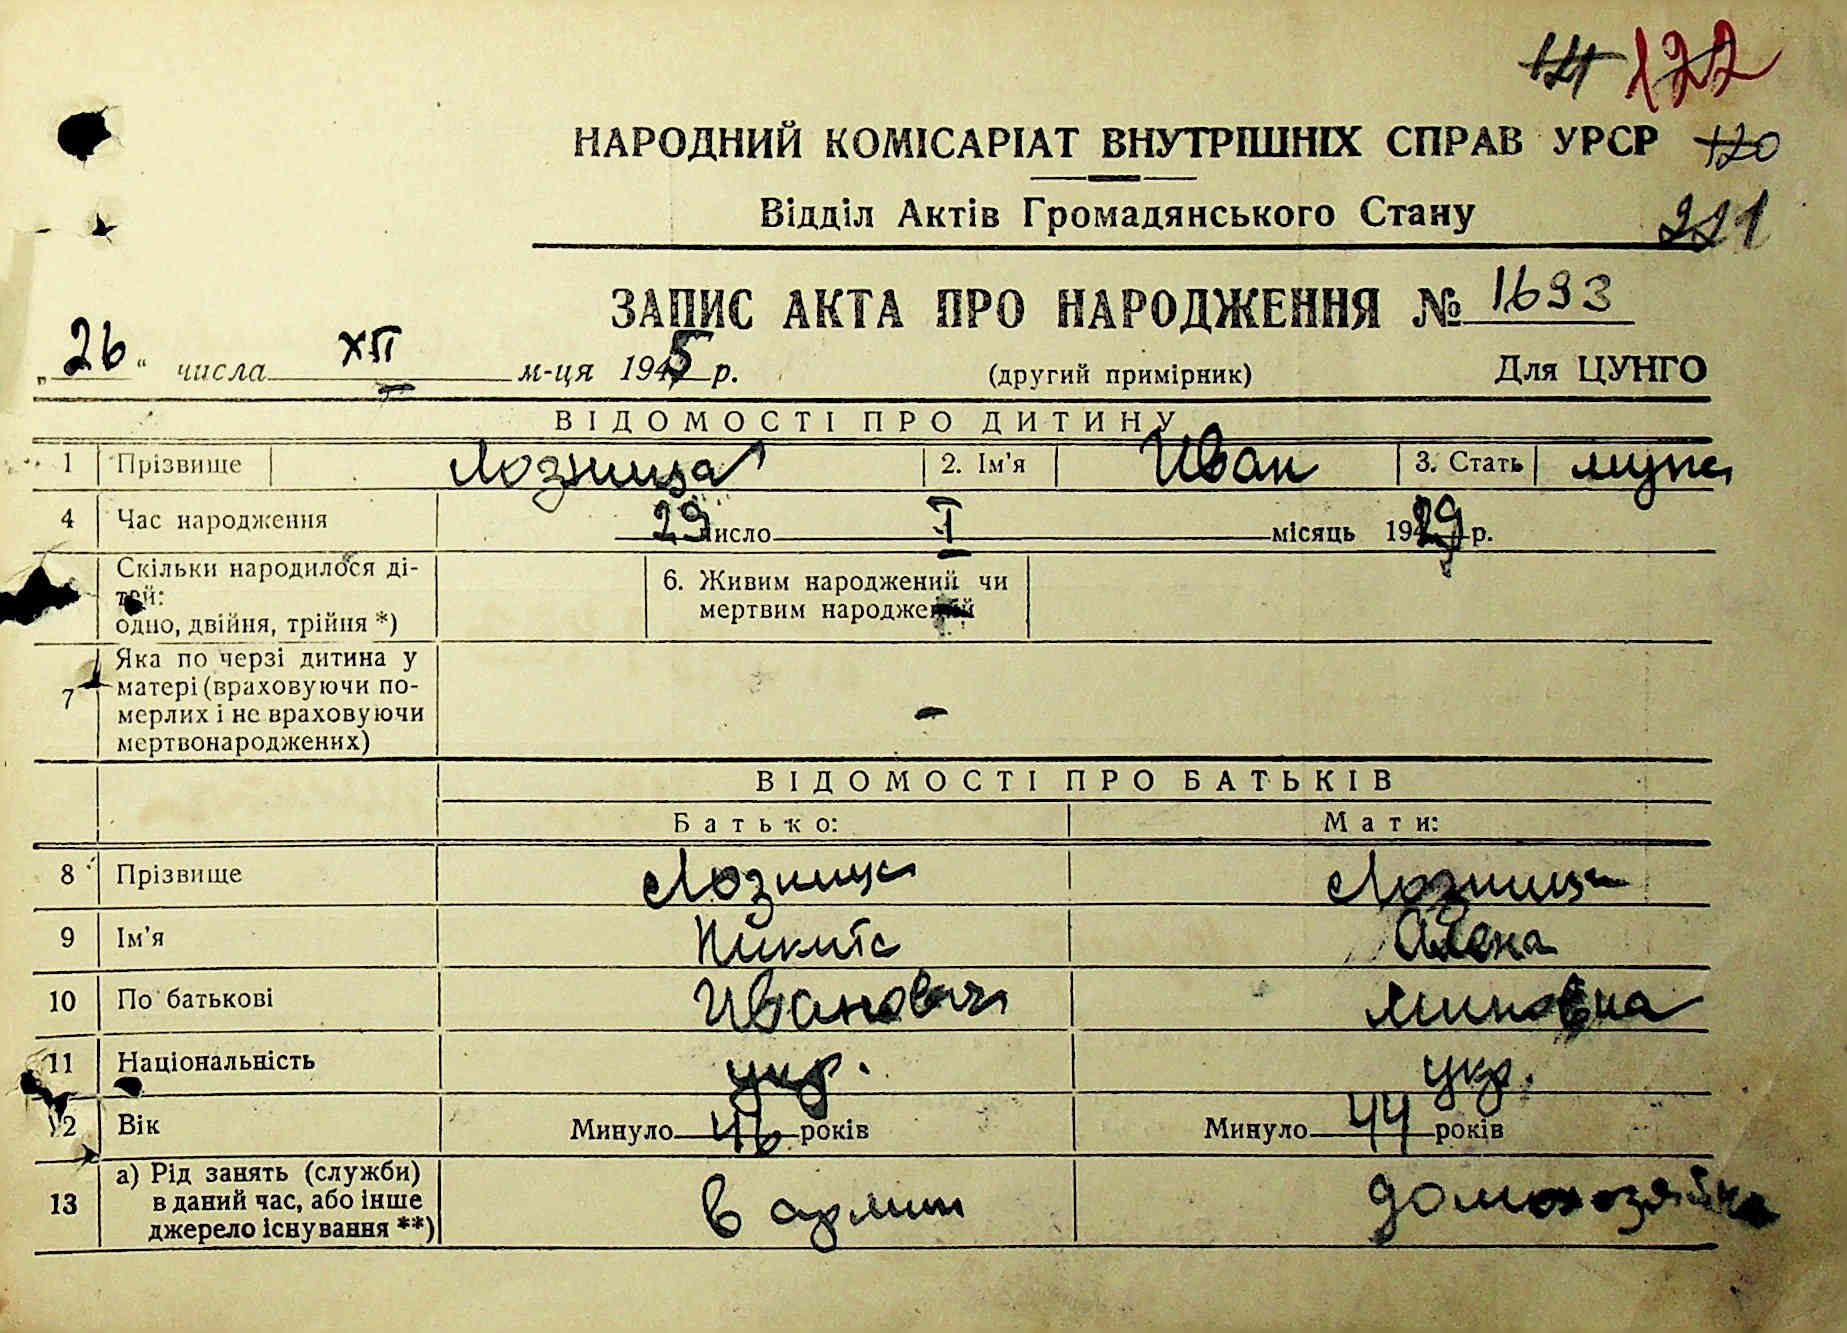 121 122
НАРОДНИЙ КОМІСАРІАТ ВНУТРІШНІХ СПРАВ УРСР 120
Відділ Актів Громадянського Стану 221
ЗАПИС АКТА ПРО НАРОДЖЕННЯ № 1693
„26“ числа XII м-ця 1945 р. (другий примірник) Для ЦУНГО
ВІДОМОСТІ ПРО ДИТИНУ
1 Прізвище Лозница 2. Ім'я Иван 3. Стать муж
4 Час народження 29 число I місяць 1929 р.
Скільки народилося ді-
тей:
одно, двійня, трійня *)
6. Живим народжений чи
мертвим народжений
7 Яка по черзі дитина у
матері (враховуючи по-
мерлих і не враховуючи
мертвонароджених) –
ВІДОМОСТІ ПРО БАТЬКІВ
Батько: Мати:
8 Прізвище Лозница Лозница
9 Ім'я Никита Алена
10 По батькові Иванович Миновна
11 Національність укр. укр.
12 Вік Минуло 46 років Минуло 44 років
13 а) Рід занять (служби)
в даний час, або інше
джерело існування **)
в армии домохозяйка